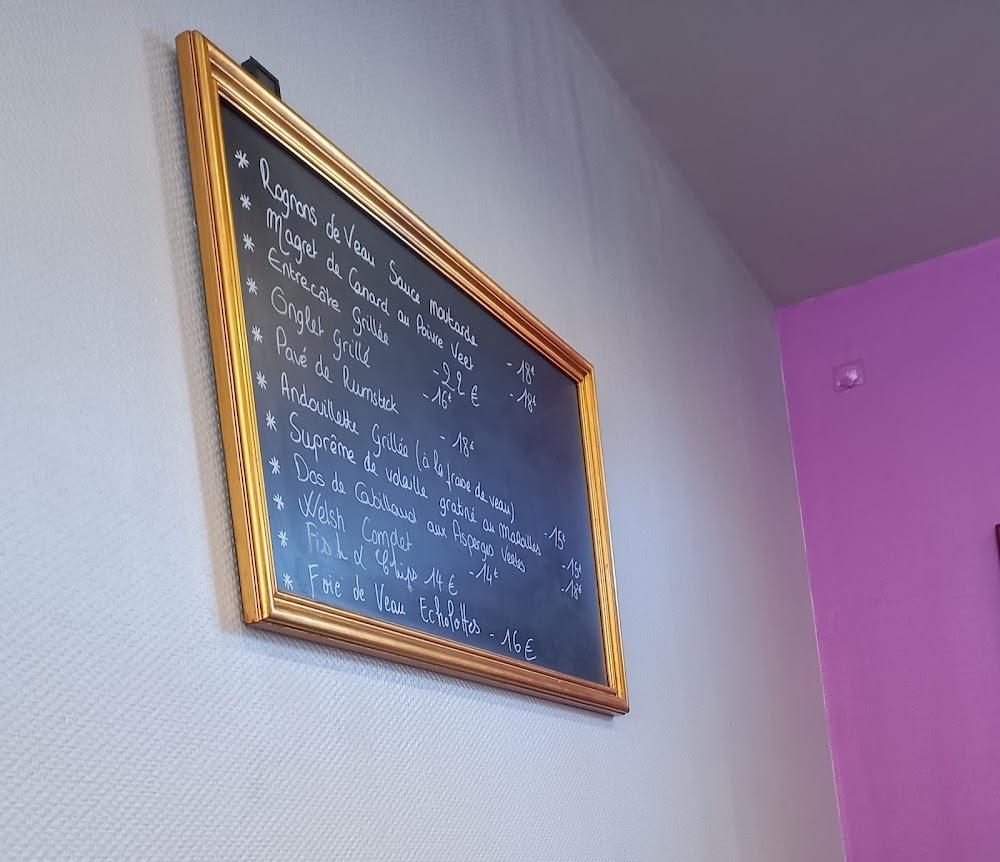 * Rognons de Veau Sauce moutarde - 18€
* Magret de Canard au Poivre Vert - 18€
* Entrecôte Grillée - 22 €
* Onglet Grillé - 16€
* Pavé de Rumsteck - 18€
* Andouillette Grillée (à la fraise de veau) - 15€
* Suprême de volaille gratiné au Maroilles - 15€
* Dos de Cabillaud aux Asperges Vertes - 18€
* Welsh Complet - 14€
* Fish & Chips 14 €
* Foie de Veau Echalottes - 16 €